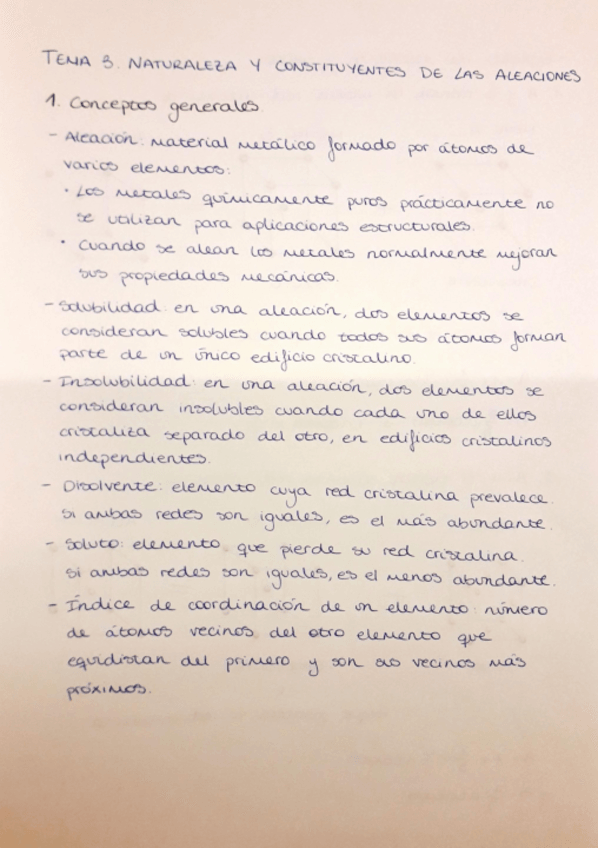 TEMA 3. NATURALEZA Y CONSTITUYENTES DE LAS ALEACIONES
1. Conceptos generales
- Aleación: material metálico formado por átomos de
varios elementos:
· Los metales químicamente puros prácticamente no
se utilizan para aplicaciones estructurales.
· Cuando se alean los metales normalmente mejoran
sus propiedades mecánicas.
- Solubilidad: en una aleación, dos elementos se
consideran solubles cuando todos sus átomos forman
parte de un único edificio cristalino.
- Insolubilidad: en una aleación, dos elementos se
consideran insolubles cuando cada uno de ellos
cristaliza separado del otro, en edificios cristalinos
independientes.
- Disolvente: elemento cuya red cristalina prevalece.
Si ambas redes son iguales, es el más abundante.
- Soluto: elemento que pierde su red cristalina.
Si ambas redes son iguales, es el menos abundante.
- Índice de coordinación de un elemento: número
de átomos vecinos del otro elemento que
equidistan del primero y son sus vecinos más
próximos.